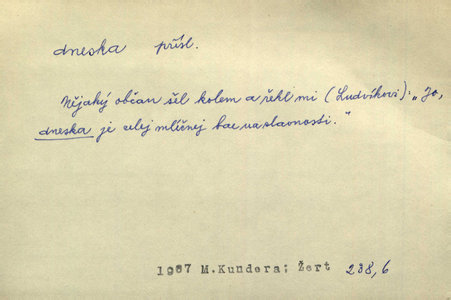 dneska přísl.
Nějaký občan šel kolem a řekl mi (Ludvíkovi): „Jo,
dneska je celej mlíčnej bar na slavnosti."
1967 M.Kundera: Žert 238,6